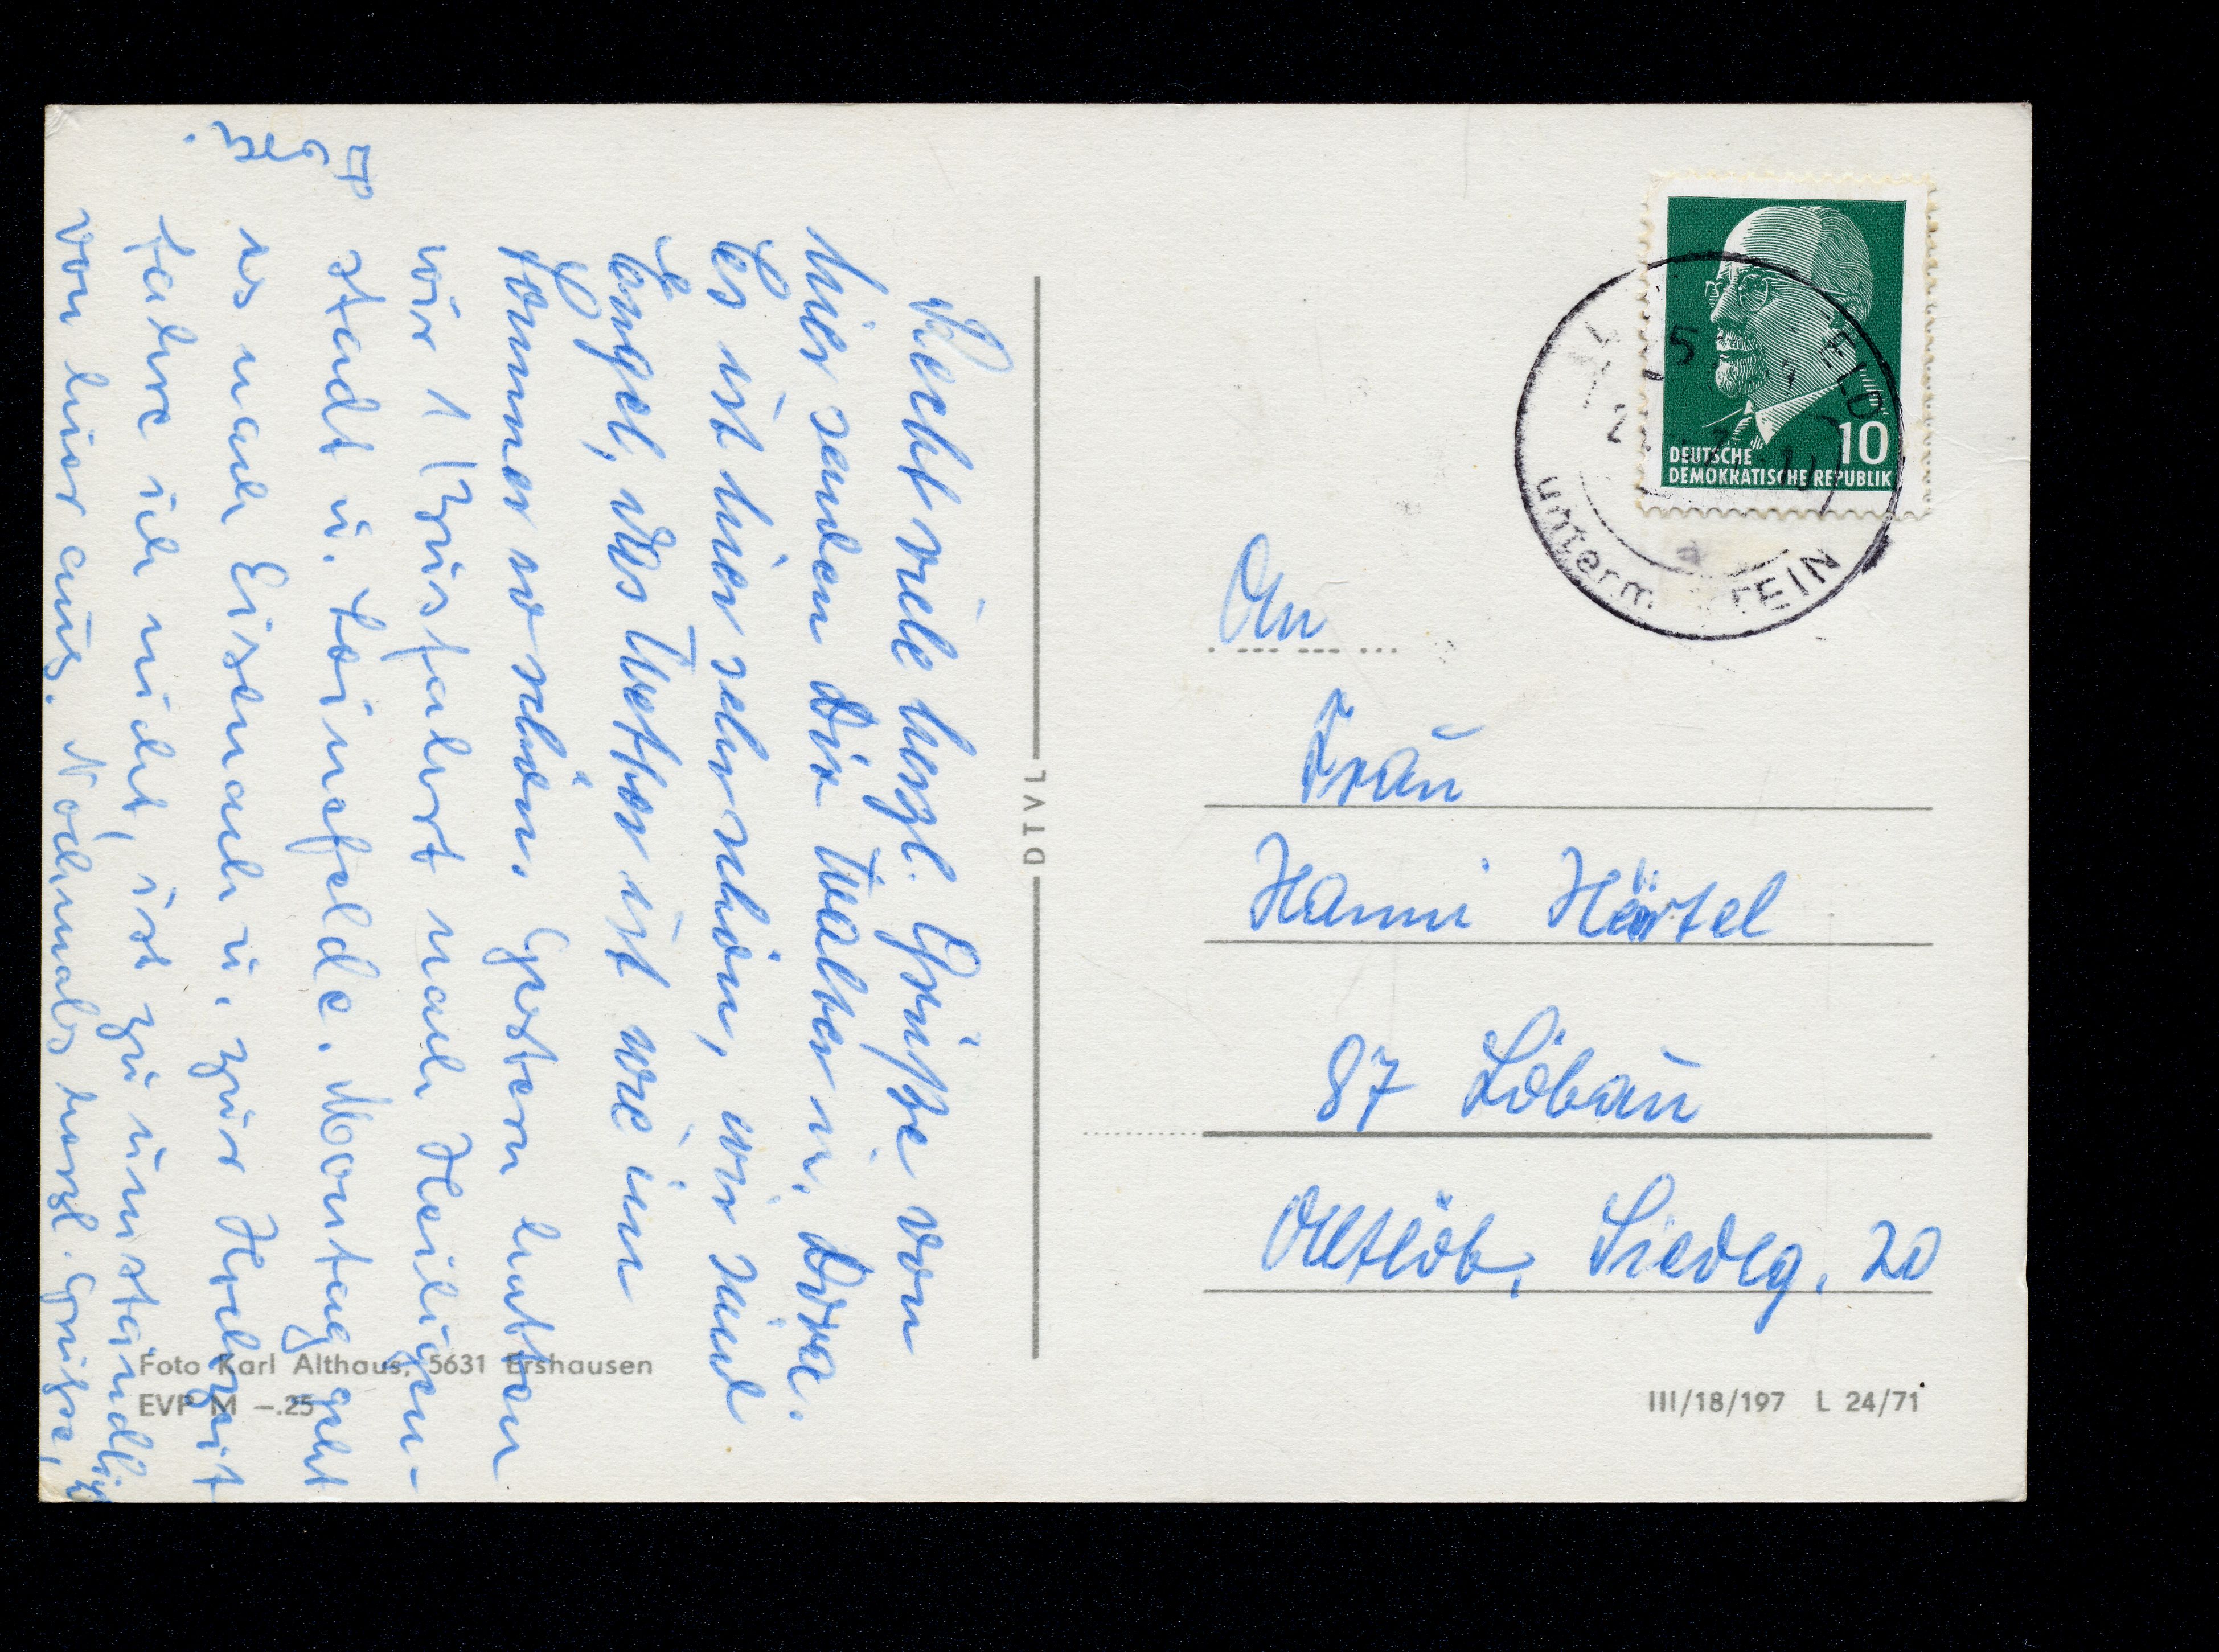 Recht viele herzl. Grüße von
hier senden Dir Walter u. Dora.
Es ist hier sehr schön, wir sind
Engel, das Wetter ist wie im
Sommer so schön. Gestern hatten
wir 1 Busfahrt nach Heiligen-
stadt u. Leinefelde. Montag geht
es nach Eisenach u. zur
fahre ich nicht, ist zu umständlich
von hier aus. Nochmals herzl. Grüße,
DEUTSCHE
DEMOKRATISCHE REPUBLIK
10
unterm STEIN
An
Frau
Hanni Härtel
87 Löbau
Altlöb. Siedlg. 20
DTVL
Foto Karl Althaus, 5631 Ershausen
EVP M –.25
III/18/197 L 24/71